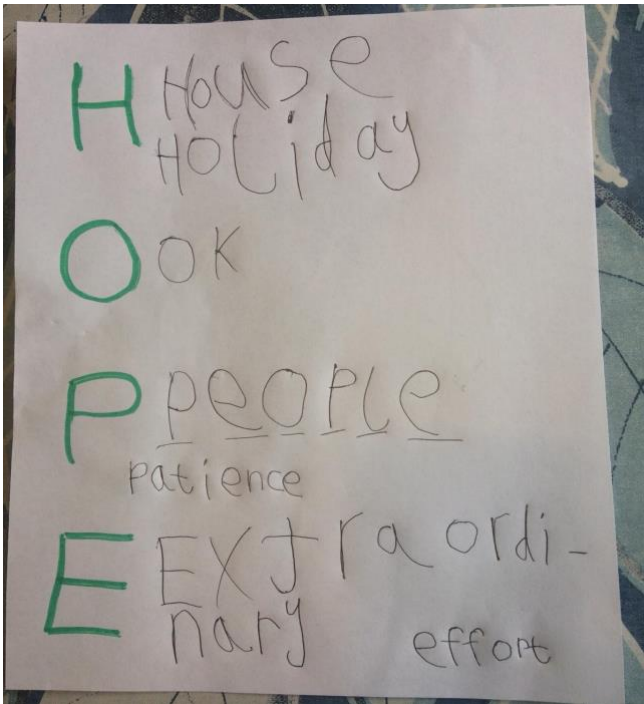 H House
Holiday
O OK
P PEOPLE
patience
E EXtraordi-
nary effort